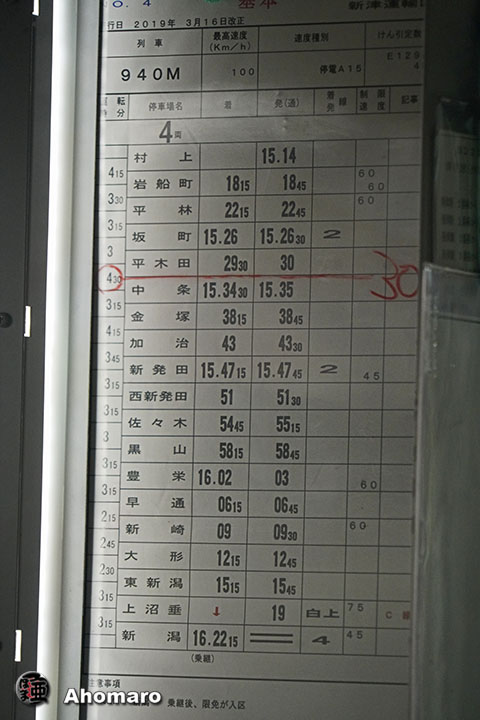 No. 4 基本 新津運輸
行日 2019年 3月16日改正
列車 最高速度(Km/h) 速度種別 けん引定数
940M 100 停電A15 E129 4
運転時分 停車場名 着 発(通) 着発線 制限速度 記事
4両
村上 15.14
4 15
岩船町 18 15 18 45 60 60
3 30
平林 22 15 22 45 60
3 15
坂町 15.26 15.26 30 2
3
平木田 29 30 30
4 30 30
中条 15.34 30 15.35
3 15
金塚 38 15 38 45
4 15
加治 43 43 30
3 45
新発田 15.47 15 15.47 45 2 45
3 15
西新発田 51 51 30
3 15
佐々木 54 45 55 15
3
黒山 58 15 58 45
3 15
豊栄 16.02 03 60
3 15
早通 06 15 06 45
2 15
新崎 09 09 30 60
2 45
大形 12 15 12 45
2 30
東新潟 15 15 15 45
3 15
上沼垂 ↓ 19 白上 75 C
3 15
新潟 16.22 15 4 45
(乗継)
注意事項
乗継後、限免が入区
Ahomaro